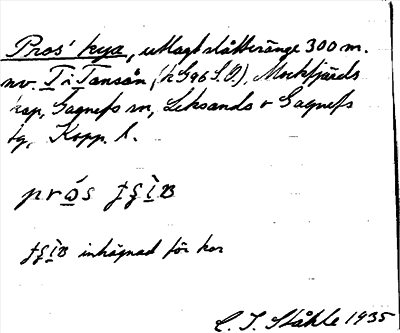 Pros' kya, utlagt slåtteränge 300 m.
nv. T i Tansån, (k G96 S.O.), Mockfjärds
kap, Gagnefs sn, Leksands o Gagnefs
tg, Kopp. l.
prós
inhägnad för kor
C. I. Ståhle 1935